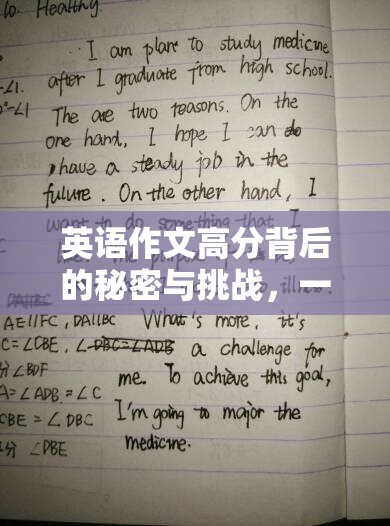 10. Healthy.
I am plan to study medicine
after I graduate from high school.
The are two reasons. On the
one hand, I hope I can do
have a steady job in the
future. On the other hand, I
want to do something that I
英语作文高分背后
的秘密与挑战，一
illness.
AE∥FC, DA∥BC What's more, it's
C=∠CBE, ∠DBC=∠ADB a challenge for
∠BDF me. To achieve this goal,
A=∠ADB, =∠C I'm going to major the
CBE = ∠DBC medicine.
分 ∠DBE